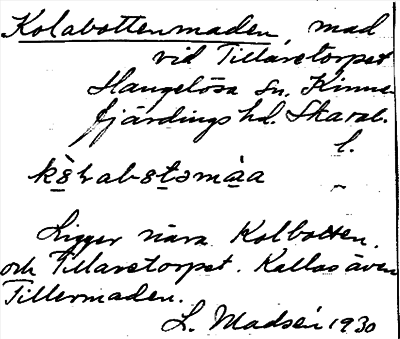 Kolabottenmaden, mad
vid Tillaretorpet
Hangelösa sn. Kinne-
fjärdings hd. Skarab.
l.
Ligger nära Kolbotten
och Tillaretorpet. Kallas även
Tillermaden.
L. Madsén 1930